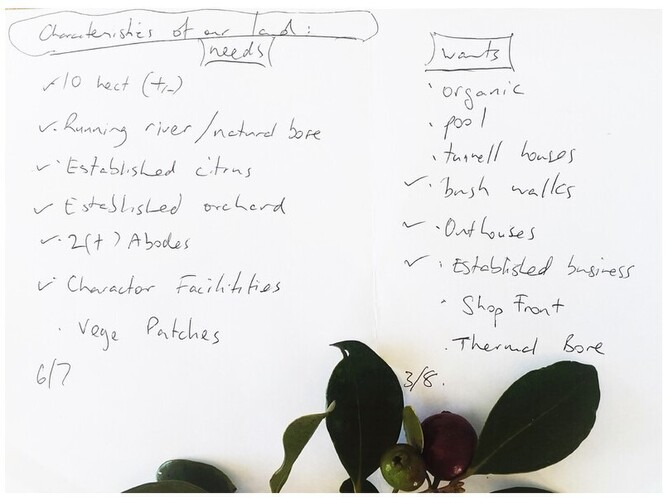 Characteristics of our land:
needs
✓ 10 hect (+/-)
✓ · Running river/natural bore
✓ · Established citrus
✓ Established orchard
✓ · 2(+) Abodes
✓ · Charactor Facilitities
· Vege Patches
6/7
wants
· organic
· pool
· tunnell houses
✓ · bush walks
✓ · Outhouses
✓ · Established business
· Shop Front
· Thermal Bore
3/8.